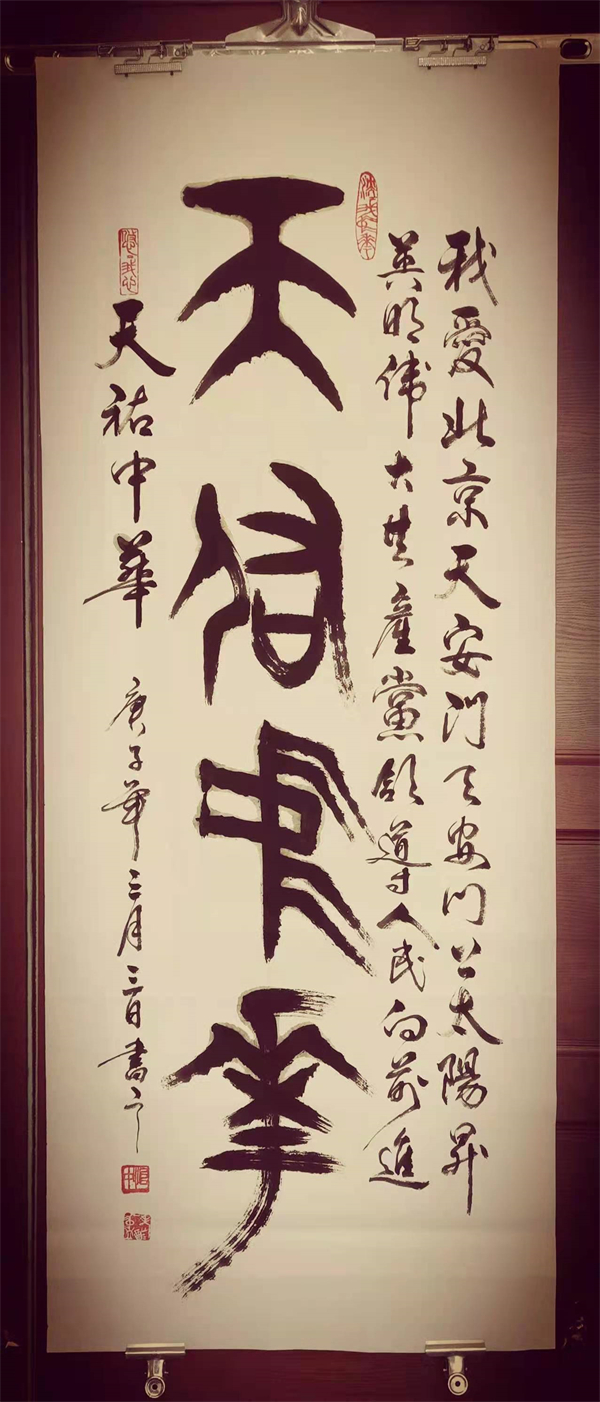 我愛北京天安门天安门上太陽昇
英明偉大共產黨領導人民向前進
天佑中華
天祐中華 庚子年三月三日書之